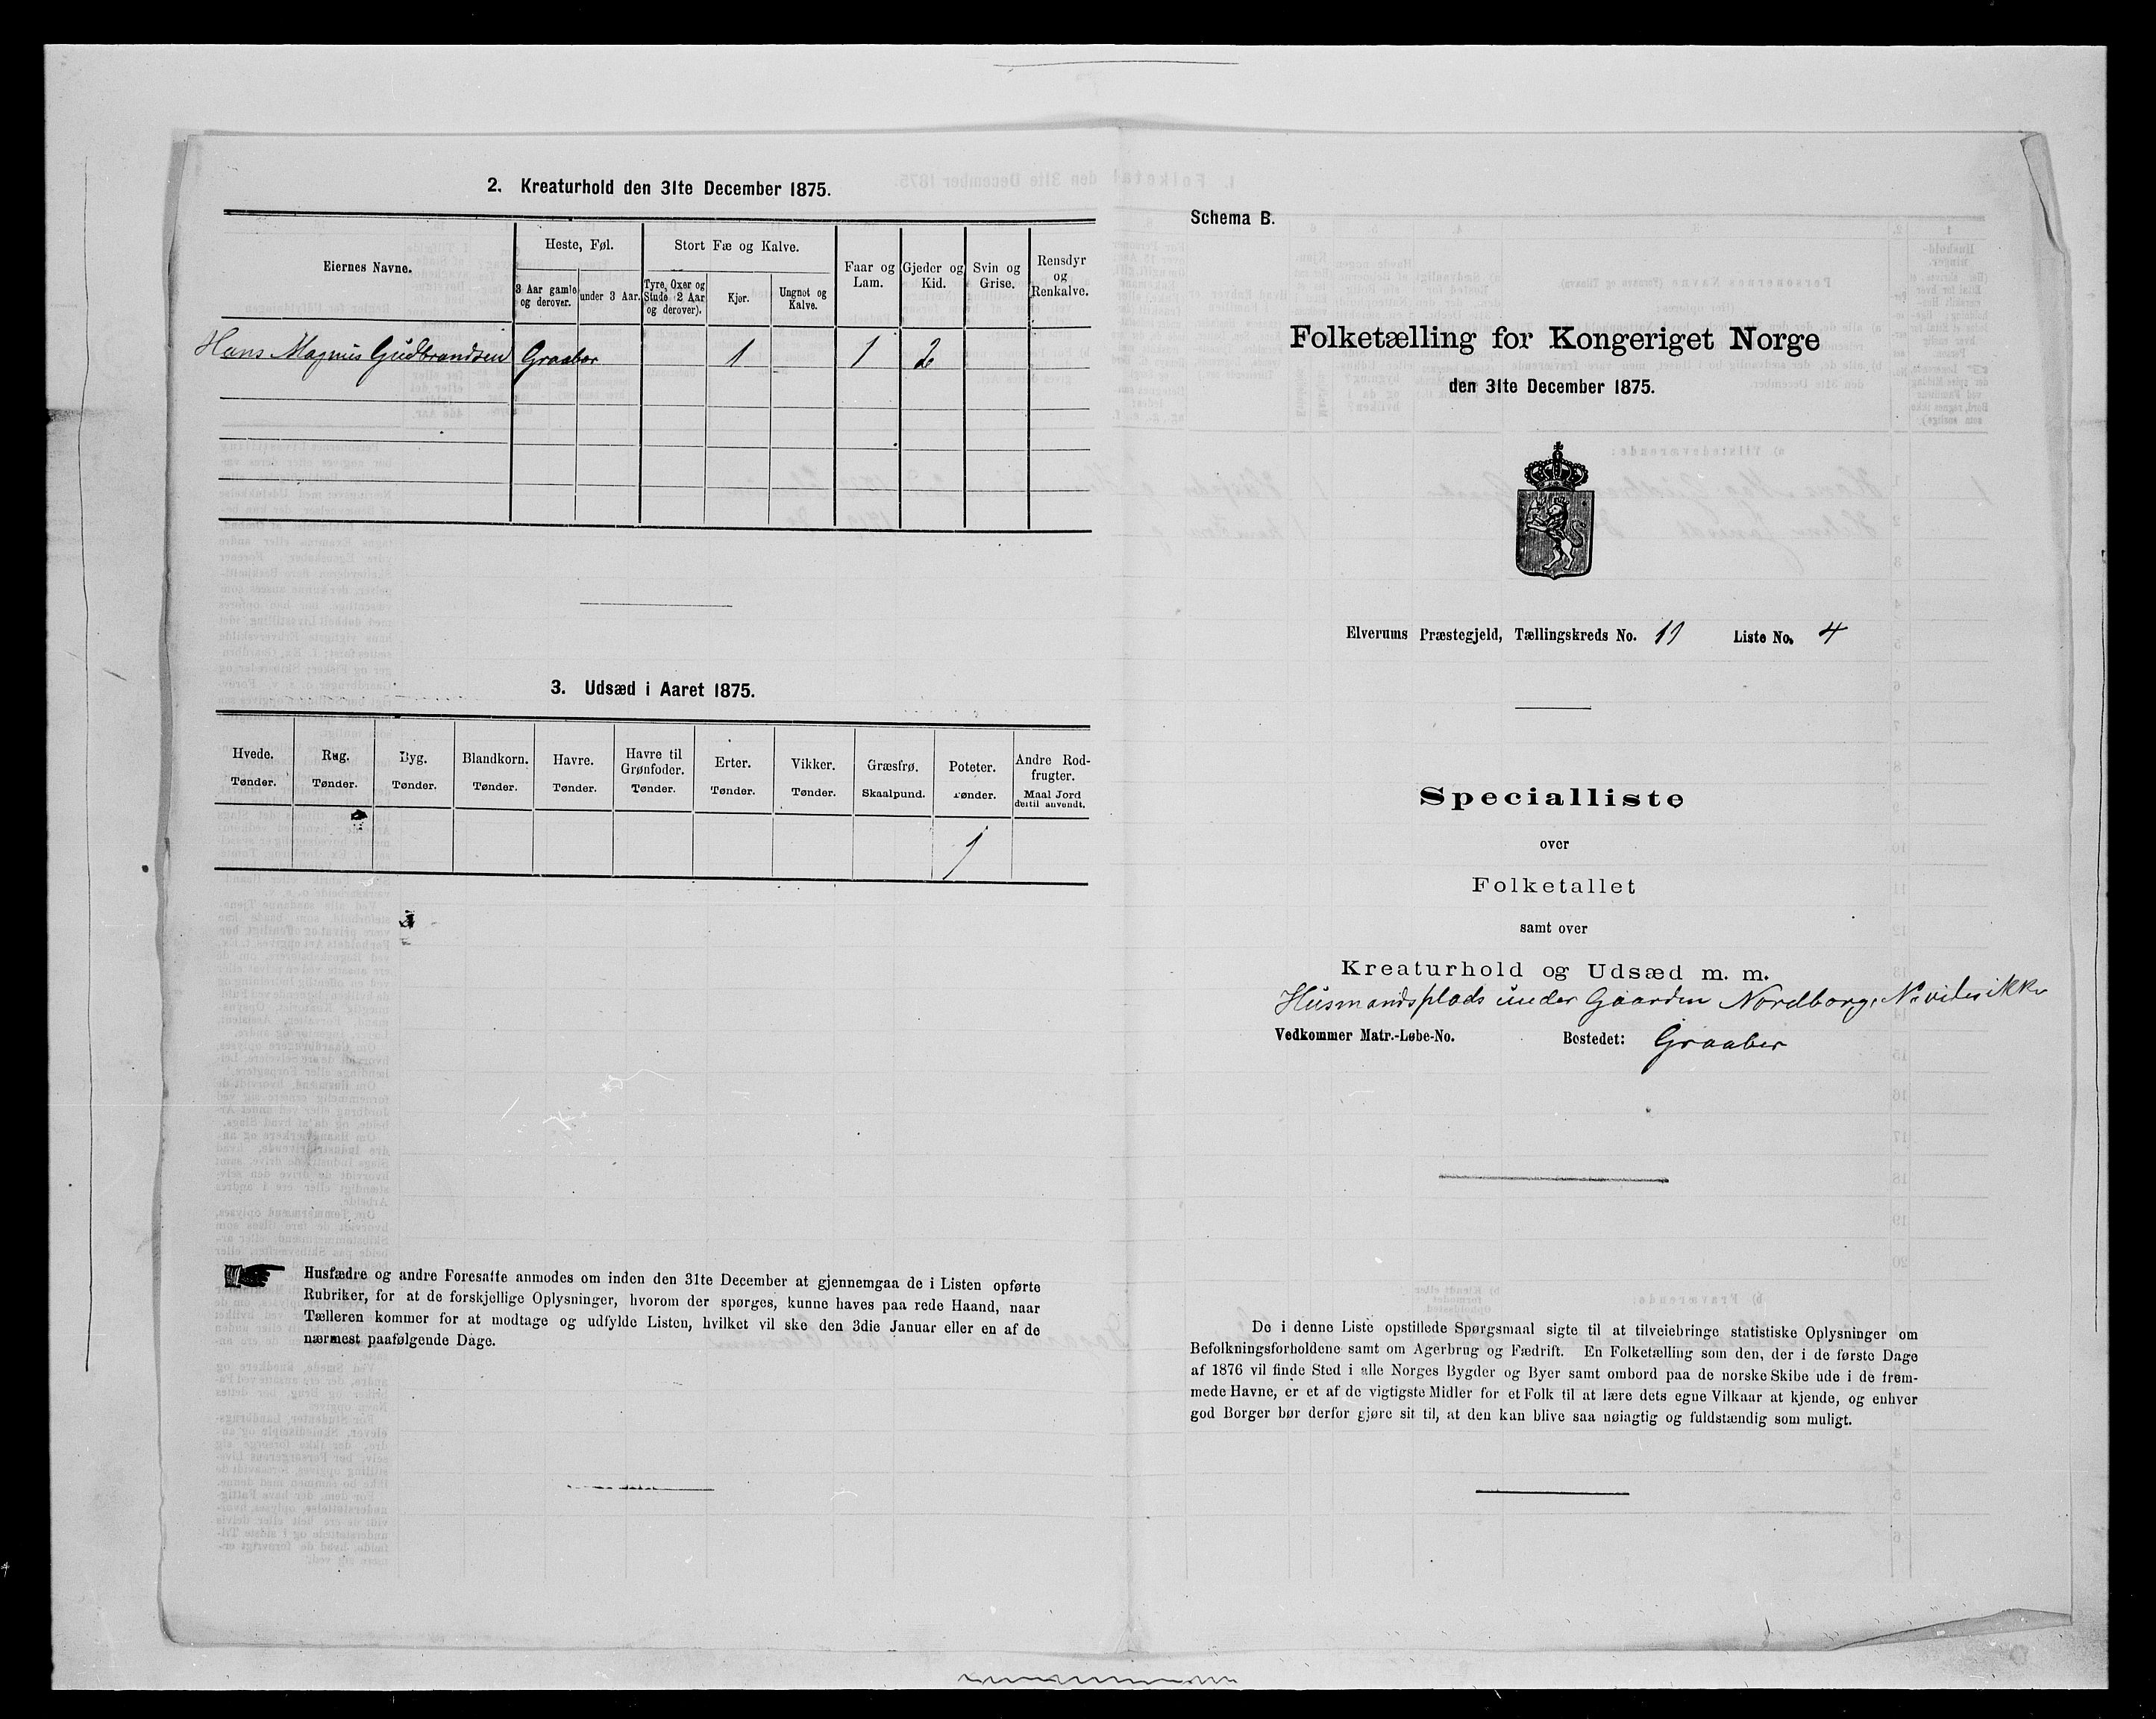 2. Kreaturhold den 31te December 1875.
Eiernes Navne.
Heste, Føl.
3 Aar gamle og derover.
under 3 Aar.
Stort Fæ og Kalve.
Tyre, Oxer og Stude (2 Aar og derover).
Kjør.
Ungnot og Kalve.
Faar og Lam.
Gjeder og Kid.
Svin og Grise.
Rensdyr og Renkalve.
Hans Magnus Gudbrandsen Graaber 1 1 2
3. Udsæd i Aaret 1875.
Hvede. Tønder.
Rug. Tønder.
Byg. Tønder.
Blandkorn. Tønder.
Havre. Tønder.
Havre til Grønfoder. Tønder.
Erter. Tønder.
Vikker. Tønder.
Græsfrø. Skaalpund.
Poteter. Tønder.
Andre Rodfrugter. Maal Jord dertil anvendt.
1
Husfædre og andre Foresatte anmodes om inden den 31te December at gjennemgaa de i Listen opførte
Rubriker, for at de forskjellige Oplysninger, hvorom der spørges, kunne haves paa rede Haand, naar
Tælleren kommer for at modtage og udfylde Listen, hvilket vil ske den 3die Januar eller en af de
nærmest paafølgende Dage.
Schema B.
Folketælling for Kongeriget Norge
den 31te December 1875.
Elverums Præstegjeld, Tællingskreds No. 11 Liste No. 4
Specialliste
over
Folketallet
samt over
Kreaturhold og Udsæd m. m.
Husmandsplads under Gaarden Nordborg, No vides ikke
Vedkommer Matr.-Løbe-No. Bostedet: Graaber
De i denne Liste opstillede Spørgsmaal sigte til at tilveiebringe statistiske Oplysninger om
Befolkningsforholdene samt om Agerbrug og Fædrift. En Folketælling som den, der i de første Dage
af 1876 vil finde Sted i alle Norges Bygder og Byer samt ombord paa de norske Skibe ude i de frem-
mede Havne, er et af de vigtigste Midler for et Folk til at lære dets egne Vilkaar at kjende, og enhver
god Borger bør derfor gjøre sit til, at den kan blive saa nøiagtig og fuldstændig som muligt.